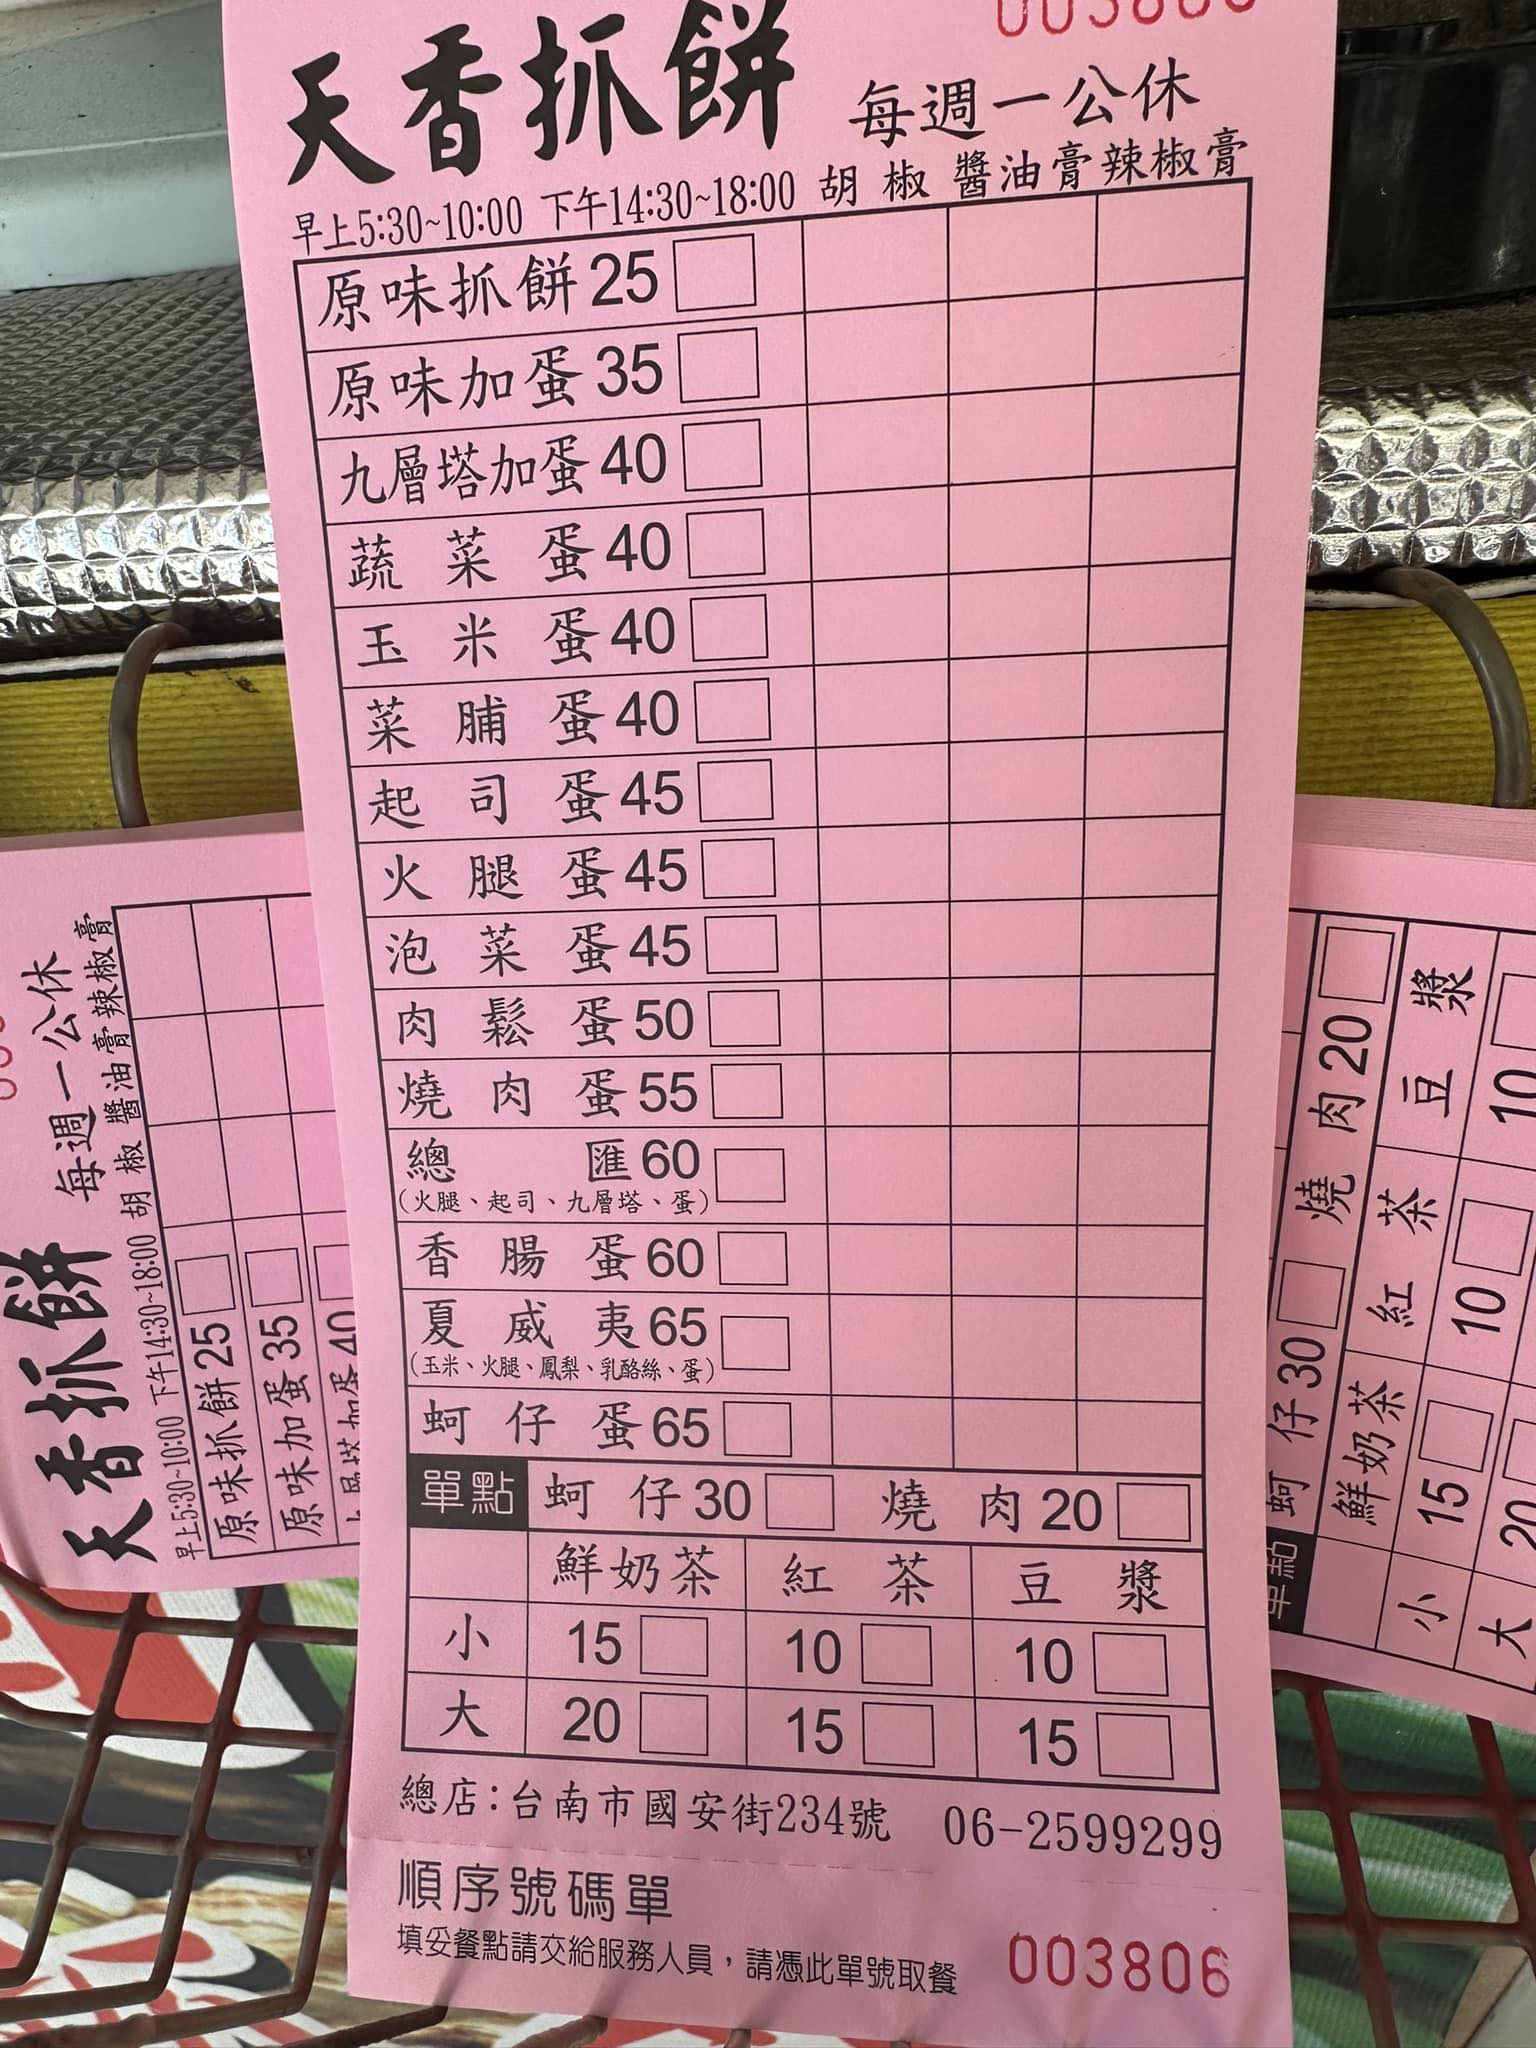 天香抓餅
每週一公休
早上5:30~10:00 下午14:30~18:00 胡椒 醬油膏 辣椒膏
原味抓餅25
原味加蛋35
九層塔加蛋40
蔬菜蛋40
玉米蛋40
菜脯蛋40
起司蛋45
火腿蛋45
泡菜蛋45
肉鬆蛋50
燒肉蛋55
總匯60
(火腿、起司、九層塔、蛋)
香腸蛋60
夏威夷65
(玉米、火腿、鳳梨、乳酪絲、蛋)
蚵仔蛋65
單點 蚵仔30 燒肉20
鮮奶茶 紅茶 豆漿
小 15 10 10
大 20 15 15
總店:台南市國安街234號 06-2599299
順序號碼單
填妥餐點請交給服務人員，請憑此單號取餐 003806
天香抓餅
每週一公休
早上5:30~10:00 下午14:30~18:00 胡椒 醬油膏 辣椒膏
原味抓餅25
原味加蛋35
單點 蚵仔30 燒肉20
鮮奶茶 紅茶 豆漿
小 15 10 10
大 20